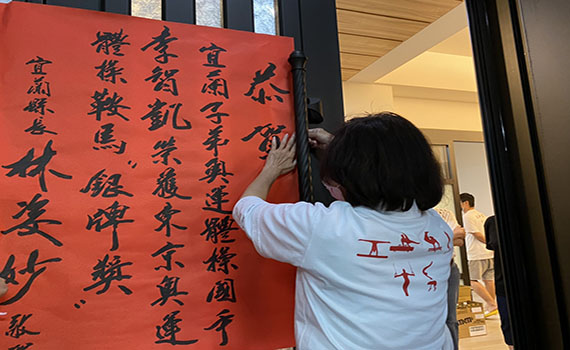 恭賀
宜蘭子弟奧運體操國手
李智凱榮獲東京奧運
體操鞍馬"銀牌獎"
宜蘭縣長
林姿妙
敬賀